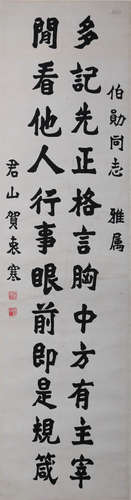 伯勛同志 雅属
多記先正格言胸中方有主宰
閒看他人行事眼前即是規箴
君山賀衷寒